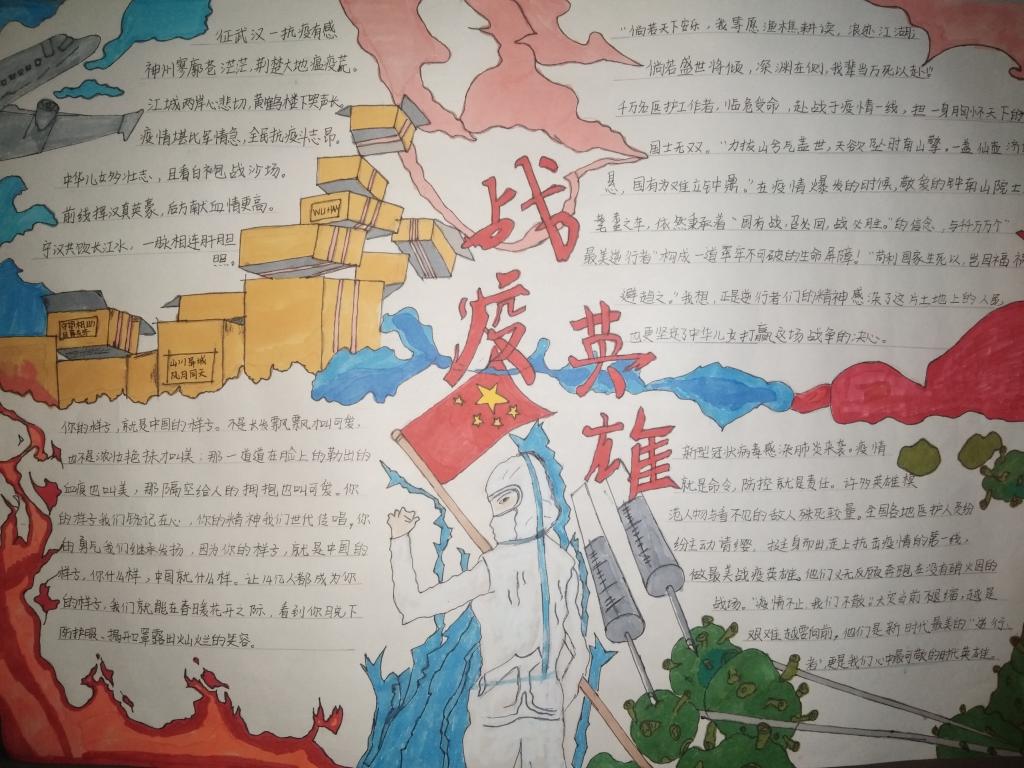 征武汉一抗疫有感
神州寥廓苍茫茫,荆楚大地瘟疫荒。
江城两岸心悲切,黄鹤楼下哭声长。
疫情堪比军情急,全民抗疫斗志昂。
中华儿女多壮志,且看白袍战沙场。
前线挥汉真英豪,后方献血情更高。
守汉共饮长江水,一脉相连肝胆
照。
"倘若天下安乐,我等愿渔樵耕读,浪迹江湖,
倘若盛世将倾,深渊在侧,我辈当万死以赴"
千万名医护工作者,临危受命,赴战于疫情一线,担一身胸怀天下的
国士无双。"力拔山兮气盖世,天欲坠时南山擎。一盏仙壶济
国有为难立钟鼎。"在疫情爆发的时候,敬爱的钟南山院士
耄耋之年,依然秉承着"国有战,召必回,战必胜。"的信念,与千万万个"
最美逆行者"构成一道牢不可破的生命屏障!"苟利国家生死以,岂因福祸
避趋之。"我想,正是逆行者们的精神感染了这片土地上的人民,
也更坚定了中华儿女打赢这场战争的决心。
战
疫
英
雄
WUHAN
守望相助
山川异域
风月同天
你的样子,就是中国的样子。不是长发飘飘才叫可爱,
也不是浓妆艳抹才叫美;那一道道在脸上的勒出的
血痕也叫美,那隔空给人的拥抱也叫可爱。你
的样子我们铭记在心,你的精神我们世代传唱。你
的勇气我们继承发扬,因为你的样子,就是中国的
样子,你什么样,中国就什么样。让14亿人都成为你
的样子,我们就能在春暖花开之际,看到你日脱下
防护服、揭开口罩露出灿烂的笑容。
新型冠状病毒感染肺炎来袭。疫情
就是命令,防控就是责任。许多英雄模
范人物与看不见的敌人殊死较量。全国各地医护人员纷
纷主动请缨,挺身而出走上抗击疫情的第一线,
做最美战疫英雄。他们义无反顾奔跑在没有硝火烟的
战场。"疫情不止,我们不散"大灾当前不退缩,越是
艰难越要向前。他们是新时代最美的"逆行
者",更是我们心中最可敬的时代英雄。